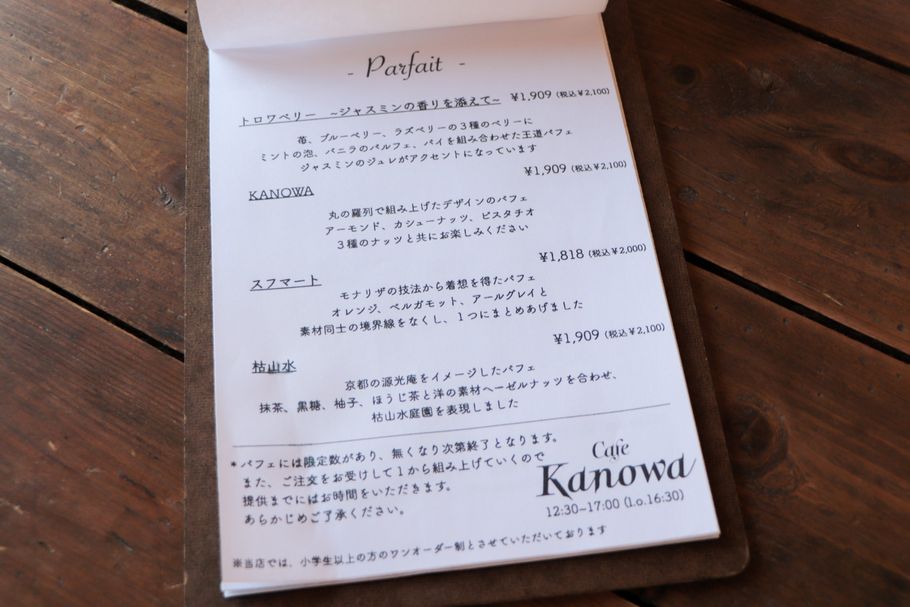 - Parfait -
トロワベリー ~ジャスミンの香りを添えて~ ¥1,909 (税込¥2,100)
苺、ブルーベリー、ラズベリーの３種のベリーに
ミントの泡、バニラのパルフェ、パイを組み合わせた王道パフェ
ジャスミンのジュレがアクセントになっています
KANOWA ¥1,909 (税込¥2,100)
丸の羅列で組み上げたデザインのパフェ
アーモンド、カシューナッツ、ピスタチオ
３種のナッツと共にお楽しみください
スフマート ¥1,818 (税込¥2,000)
モナリザの技法から着想を得たパフェ
オレンジ、ベルガモット、アールグレイと
素材同士の境界線をなくし、１つにまとめあげました
枯山水 ¥1,909 (税込¥2,100)
京都の源光庵をイメージしたパフェ
抹茶、黒糖、柚子、ほうじ茶と洋の素材ヘーゼルナッツを合わせ、
枯山水庭園を表現しました
*パフェには限定数があり、無くなり次第終了となります。
また、ご注文をお受けして１から組み上げていくので
提供までにはお時間をいただきます。
あらかじめご了承ください。
Cafe
Kanowa
12:30~17:00 (l.o.16:30)
※当店では、小学生以上の方のワンオーダー制とさせていただいております